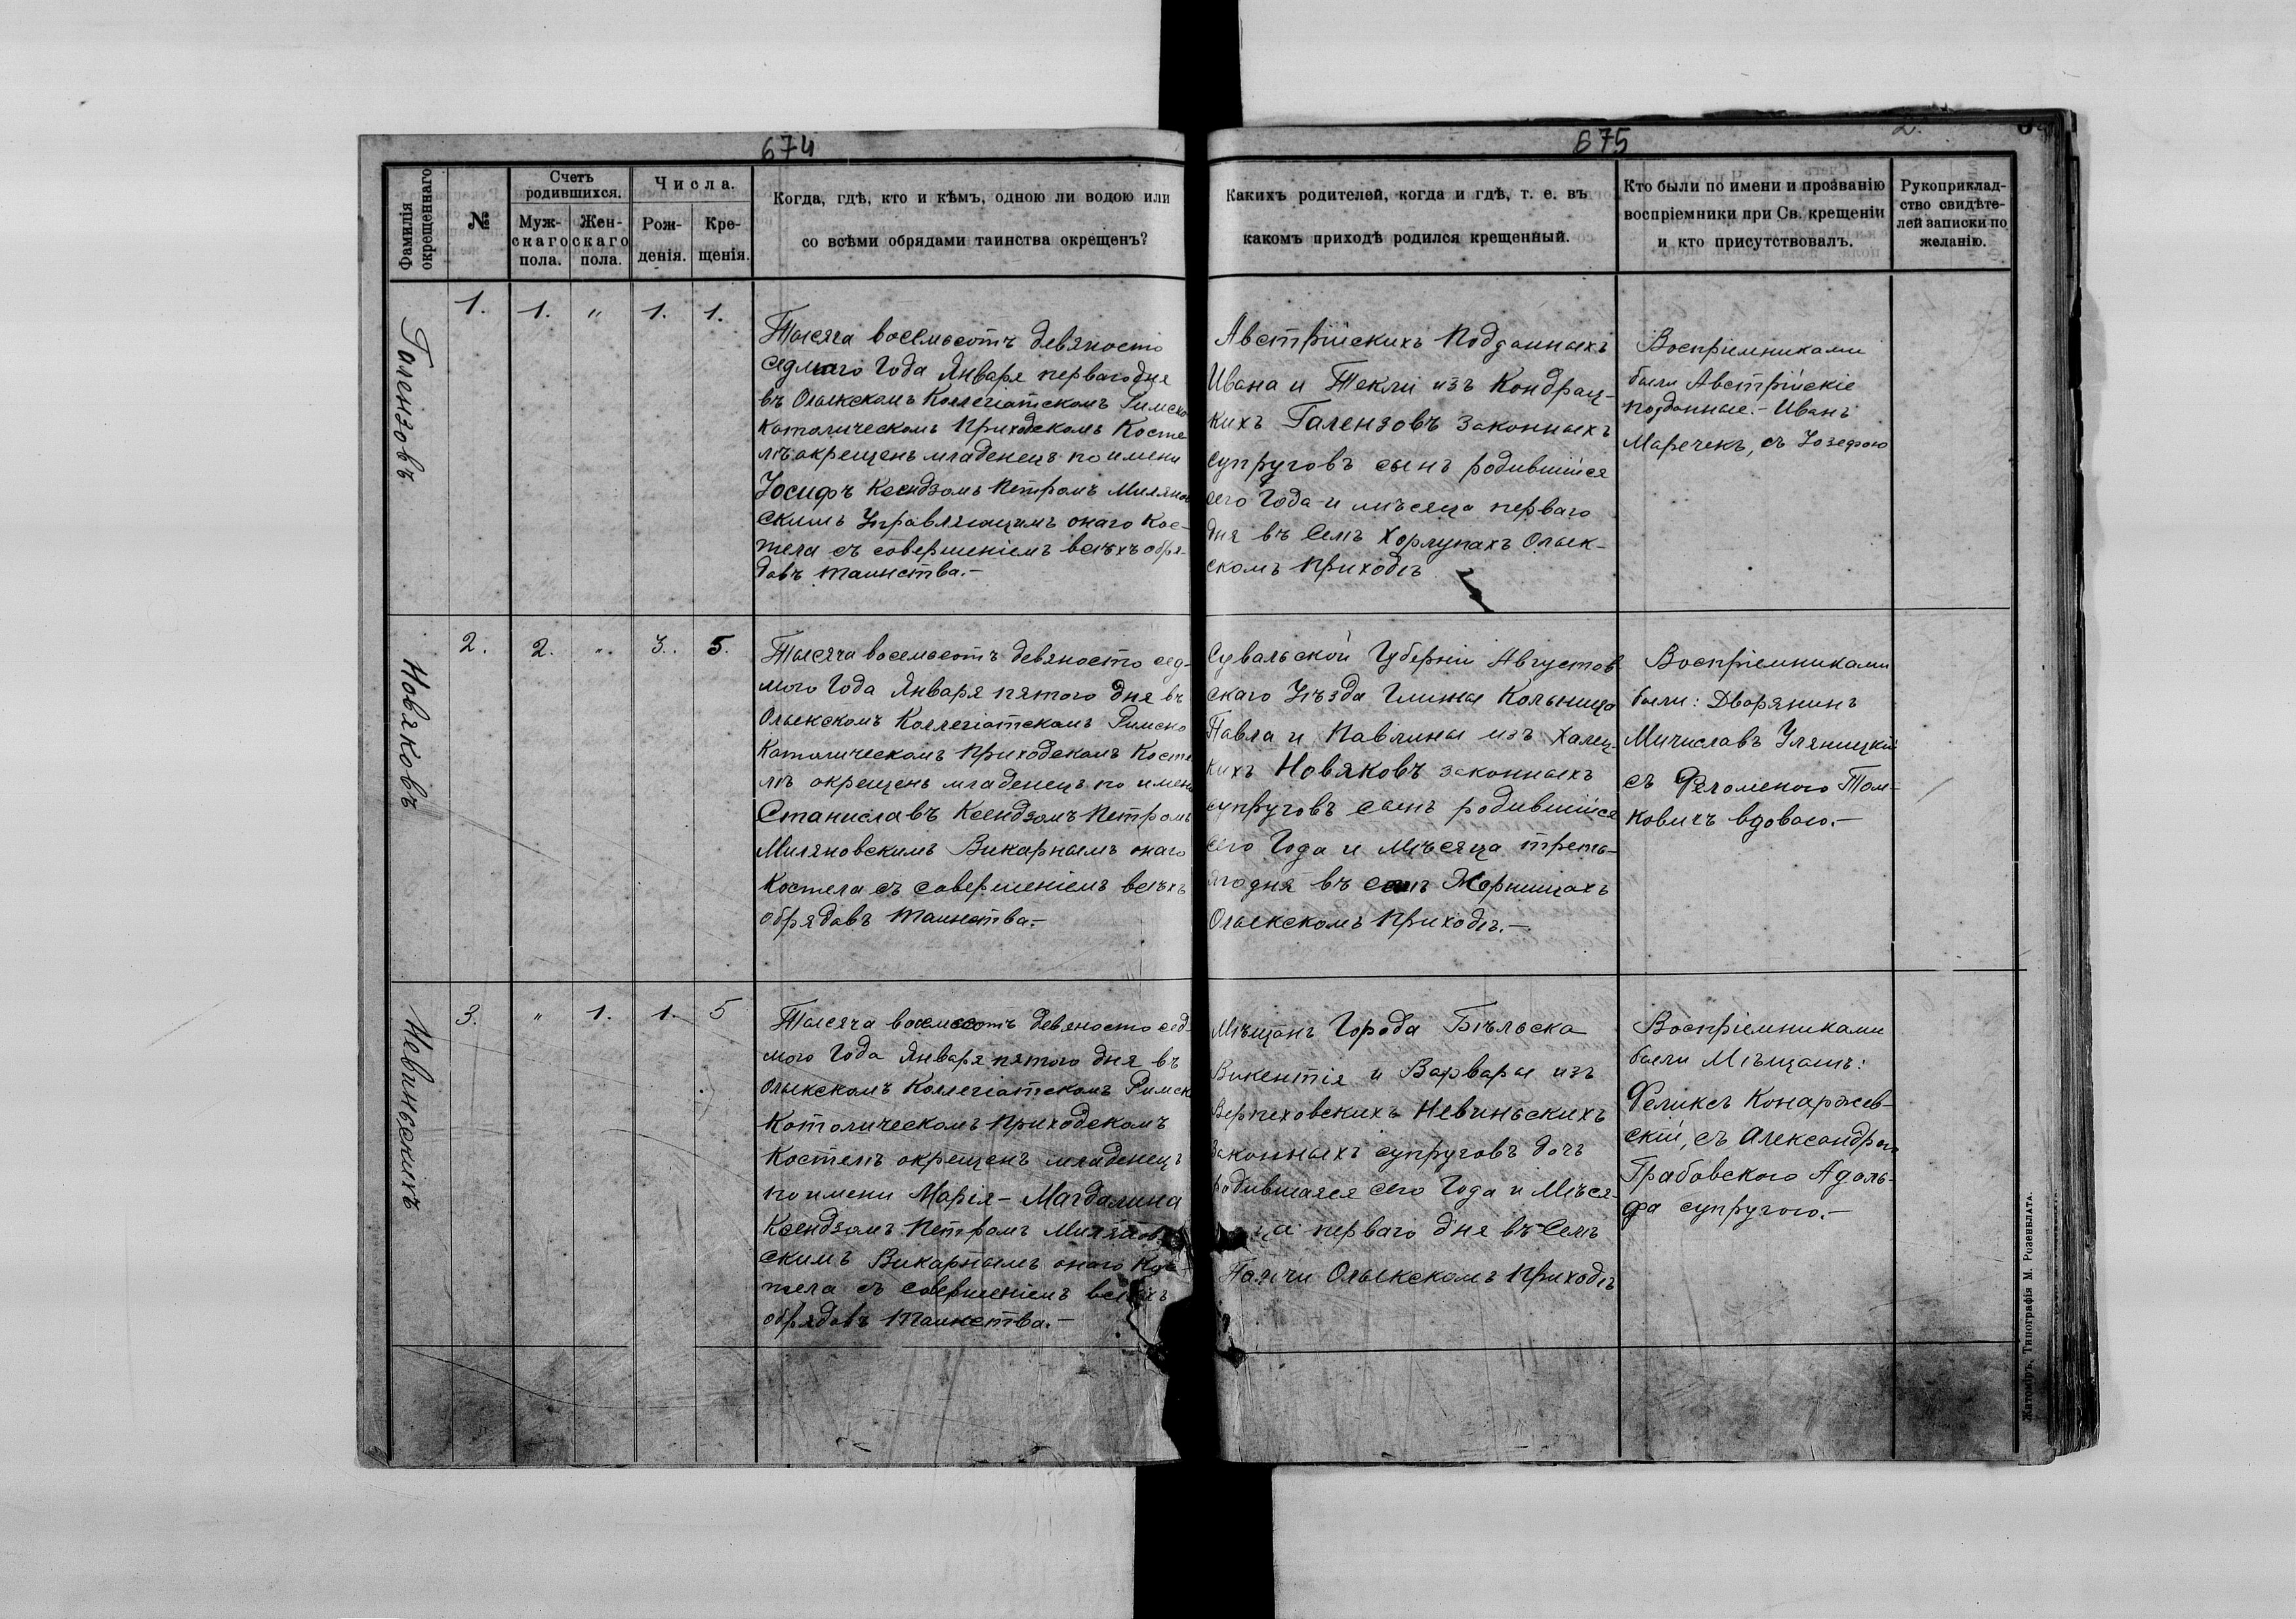 674
Фамилія
окрещеннаго
№
Счетъ
родившихся.
Муж-
скаго
пола.
Жен-
скаго
пола.
Числа.
Рож-
денія.
Кре-
щенія.
Когда, гдѣ, кто и кѣмъ, одною ли водою или
со всѣми обрядами таинства окрещенъ?
675
2.
Какихъ родителей, когда и гдѣ, т. е. въ
какомъ приходѣ родился крещенный.
Кто были по имени и прозванію
воспріемники при Св. крещеніи
и кто присутствовалъ.
Рукоприклад-
ство свидѣте-
лей записки по
желанію.
Галензовъ
1. 1. " 1. 1.
Тысяча восемьсотъ девяносто
седмаго Года Января перваго дня
въ Олыкскомъ Коллегіатскомъ Римско
Католическомъ Приходскомъ Косте
лѣ окрещенъ младенецъ по имени
Іосифъ Ксендзомъ Петромъ Милянов
скимъ Управляющимъ онаго Кос-
тела съ совершеніемъ всѣхъ обря-
довъ таинства.-
Австрійскихъ Подданныхъ
Ивана и Текли изъ Кондрац-
кихъ Галензовъ законныхъ
супруговъ сынъ родившійся
сего Года и мѣсяца перваго
дня въ Селѣ Хорлупахъ Олык-
скомъ Приходѣ
Воспріемниками
были Австрійскіе
подданные.- Иванъ
Маречекъ, съ Іозефою
Новяковъ
2. 2. " 3. 5.
Тысяча восемьсотъ девяносто сед-
маго Года Января пятого Дня въ
Олыкскомъ Коллегіатскомъ Римско
Католическомъ Приходскомъ Косте
лѣ окрещенъ младенецъ по имени
Станиславъ Ксендзомъ Петромъ
Миляновскимъ Викарнымъ онаго
Костела съ совершеніемъ всѣхъ
обрядовъ таинства.-
Сувальской Губерніи Августов
скаго Уѣзда Гмины Кольница
Павла и Павлины изъ Халец-
кихъ Новяковъ законныхъ
супруговъ сынъ родившійся
сего Года и Мѣсяца треть-
яго дня въ селѣ Жорнищахъ
Олыкскомъ Приходѣ.-
Воспріемниками
были: Дворянинъ
Мичиславъ Уляницкій
съ Феломеною Том-
ковичъ вдовою.-
Невиньскихъ
3. " 1. 1. 5
Тысяча восемьсотъ девяносто сед-
мого Года Января пятого дня въ
Олыкскомъ Коллегіатскомъ Римско
Католическомъ Приходскомъ
Костелѣ окрещенъ младенецъ
по имени Марія - Магдалина
Ксендзомъ Петромъ Миляновъ
скимъ Викарнымъ онаго Кос-
тела съ совершеніемъ всѣхъ
обрядовъ таинства.-
Мѣщанъ Города Бѣльска
Викентія и Варвары изъ
Верпеховскихъ Невиньскихъ
законныхъ супруговъ дочь
родившаяся сего Года и Мѣся-
ца перваго дня въ Селѣ
Олыкскомъ Приходѣ
Воспріемниками
были Мѣщане:
Феликсъ Конаржев-
скій, съ Александрою
Грабовского Адоль-
фа супругою.-
Житоміръ, Типографія М. Розенблата.